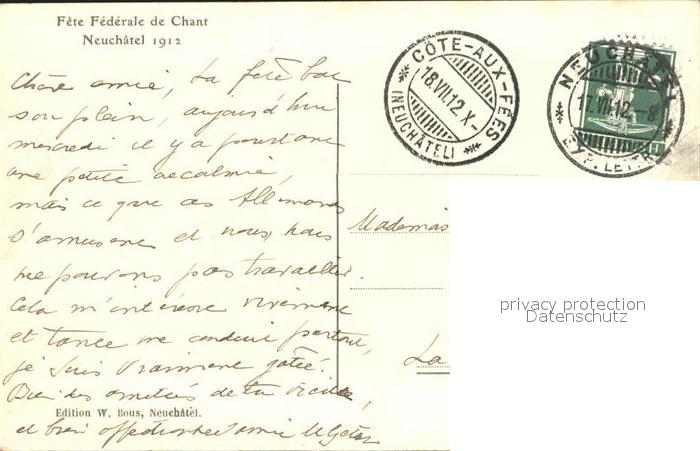 Fête Fédérale de Chant
Neuchâtel 1912
Chère amie, La fête bat
son plein, aujourd'hui
mercredi il y a pourtant
une petite accalmie,
mais ce que ces Allemands
s'amusent et nous, nous
ne pouvons pas travailler.
Cela m'intéresse vivement
et tante me conduit partout,
je suis vraiment gâtée.
Bien des amitiés de ta vieille,
Edition W. Bous, Neuchâtel.
et bien affectionnée amie
COTE-AUX-FÉES
18.VII.12.X-
(NEUCHÂTEL)
NEUCHÂTEL
17.VII.12. 8
EXP. LETTR.
Mademois
La
privacy protection
Datenschutz